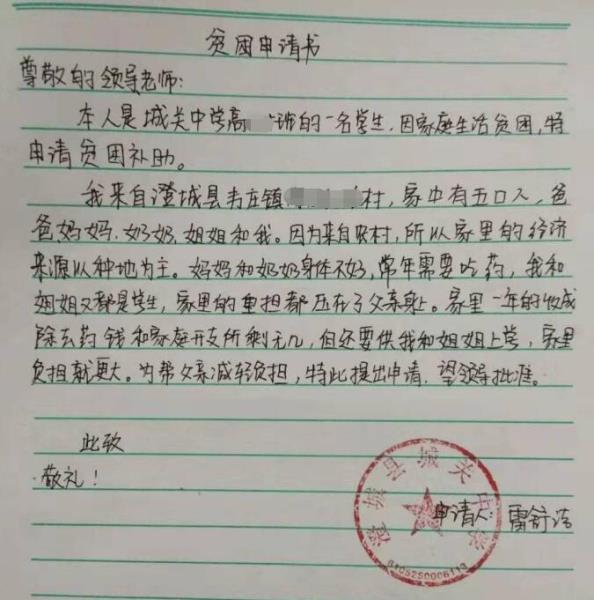 贫困申请书
尊敬的领导老师:
本人是城关中学高 班的一名学生,因家庭生活贫困,特
申请贫困补助。
我来自澄城县韦庄镇 村,家中有五口人,爸
爸妈妈、奶奶,姐姐和我。因为来自农村,所以家里的经济
来源以种地为主。妈妈和奶奶身体不好,常年需要吃药,我和
姐姐又都是学生,家里的重担都压在了父亲身上。家里一年的收成
除去药钱和家庭开支所剩无几,但还要供我和姐姐上学,家里
负担就更大。为帮父亲减轻负担,特此提出申请,望领导批准。
此致
敬礼!
申请人:雷舒洁
澄城县城关中学
6105250006113